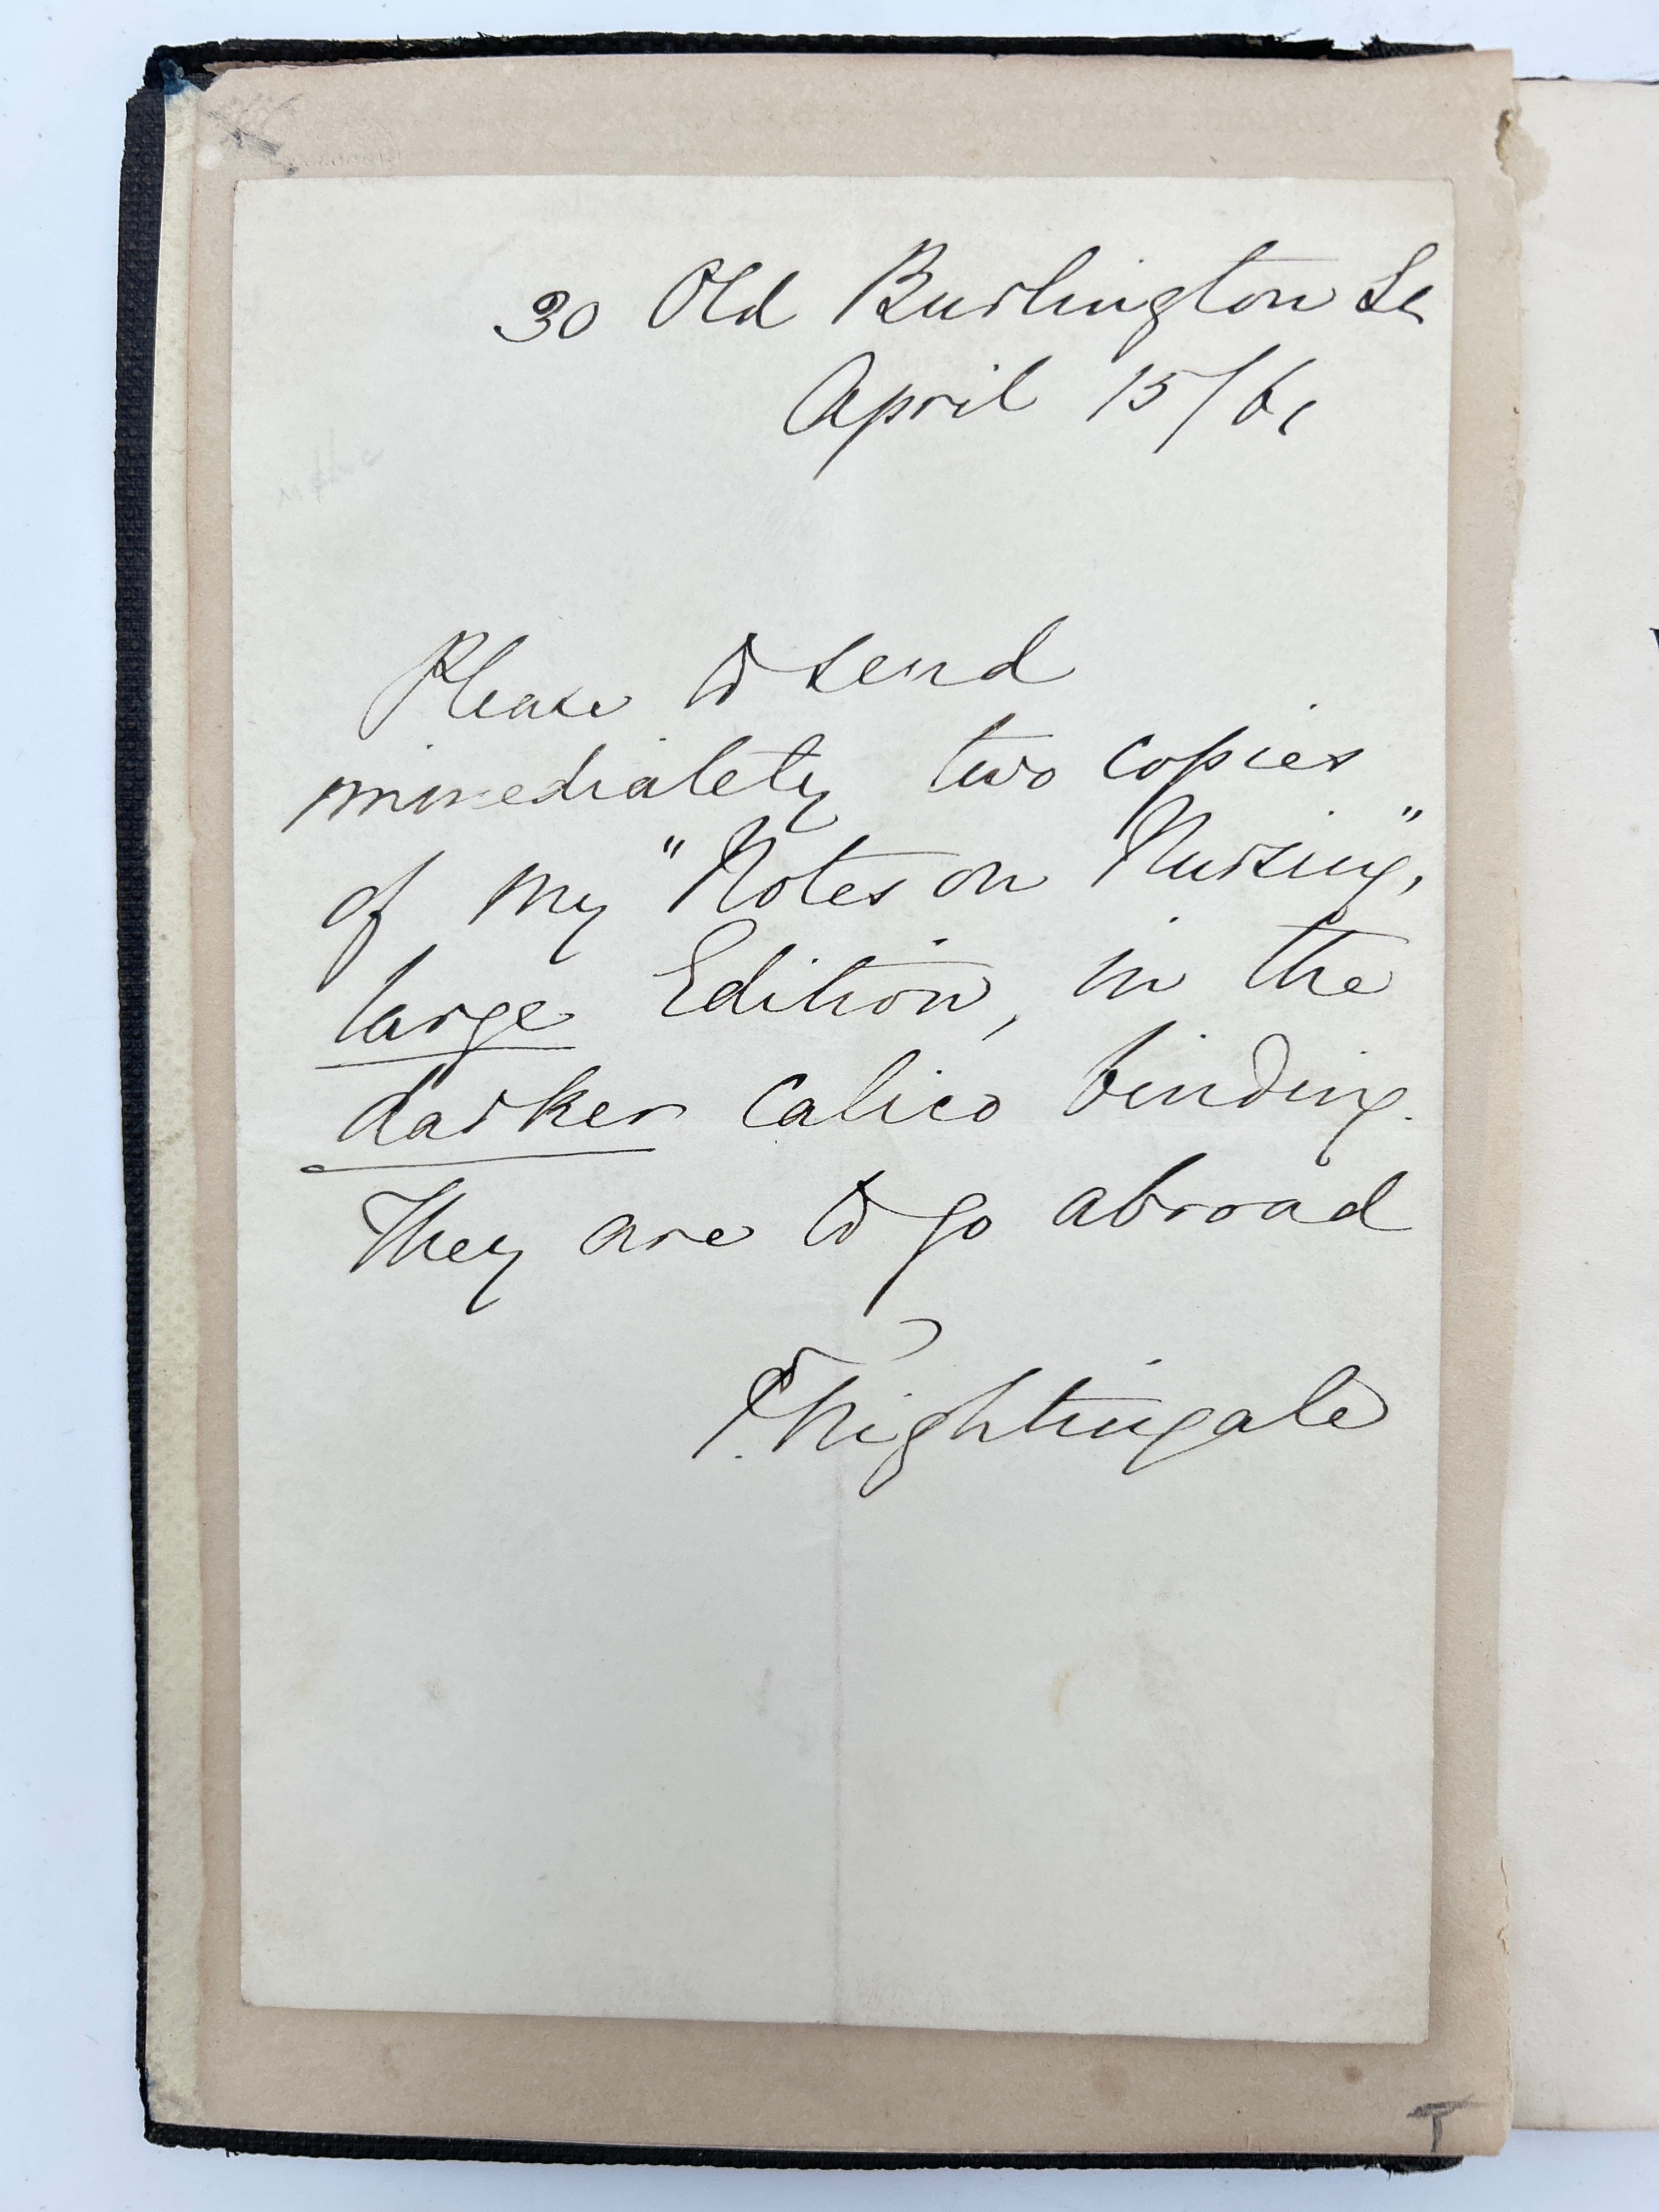 30 Old Burlington St
April 15/61
Please to send
immediately two copies
of my "Notes on Nursing,"
large Edition, in the
darker calico binding.
They are to go abroad
F. Nightingale
T